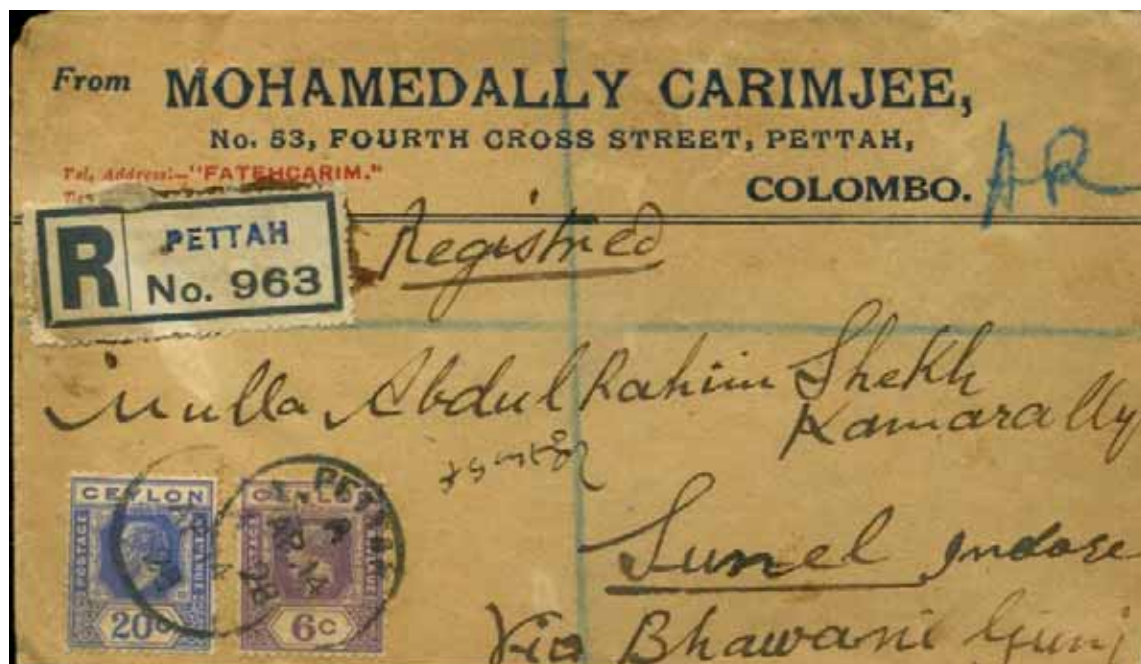 From MOHAMEDALLY CARIMJEE,
No. 53, FOURTH CROSS STREET, PETTAH,
Tel. Address:—"FATEHCARIM."
COLOMBO.
AR
R PETTAH
No. 963
Registried
Mulla Abdul Rahim Shekh
Kamarally
Sunel Indore
Via Bhawani Gunj
CEYLON
POSTAGE
20c
CEYLON
REVENUE
6c
PETTAH